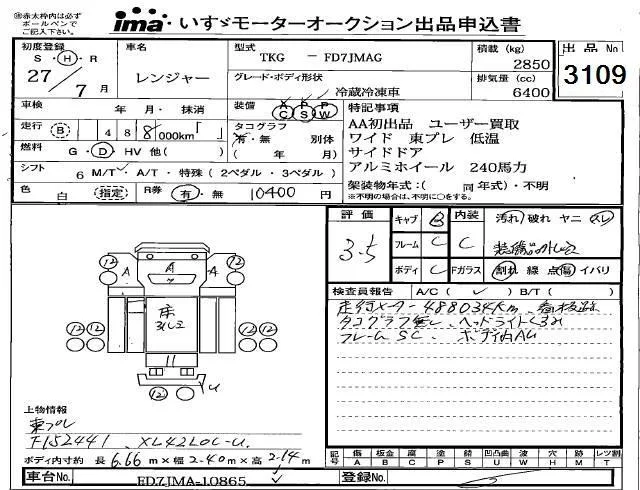 ※赤太枠内は必ず
ボールペンで
ご記入下さい。
ima いすゞモーターオークション出品申込書
初度登録 S・H・R 27/7月
車名 レンジャー
型式 TKG － FD7JMAG
グレード・ボディ形状 冷蔵冷凍車
積載 (kg) 2850
排気量 (cc) 6400
出品No 3109
車検 年 月・抹消
装備 A/C P/S P/W
走行 B 488,000km「 」
タコグラフ 有・無 別体 ( 年 月)
燃料 G・D・HV 他( )
シフト 6 M/T A/T・特殊(2ペダル・3ペダル)
色 白 指定 R券 有・無 10400 円
特記事項
AA初出品 ユーザー買取
ワイド 東プレ 低温
サイドドア
アルミホイール 240馬力
架装物年式:( 同 年式)・不明
※不明の場合は、不明に○をする。
評価 3.5
キャブ B
フレーム C
ボディ C
内装 C
汚れ 破れ ヤニ スレ
Fガラス 割れ 線 点傷 イバリ
検査員報告 A/C( ✓ ) B/T( )
走行メーター488034km、
タコグラフ無し、ヘッドライトくもり
フレームSC、ボディ内AU
12 12
A A A
12 12 12 12
12 U
上物情報
東プレ
F152441 XL42LOC-U
ボディ内寸約 長 6.66 m×幅 2.40 m×高 2.14 m
記号 傷 A 板金 B 腐 C 塗 P 錆 S 凹凸曲 U 波 W 穴 H 跡 M レツ割 T
車台No. FD7JMA-10865
登録No.